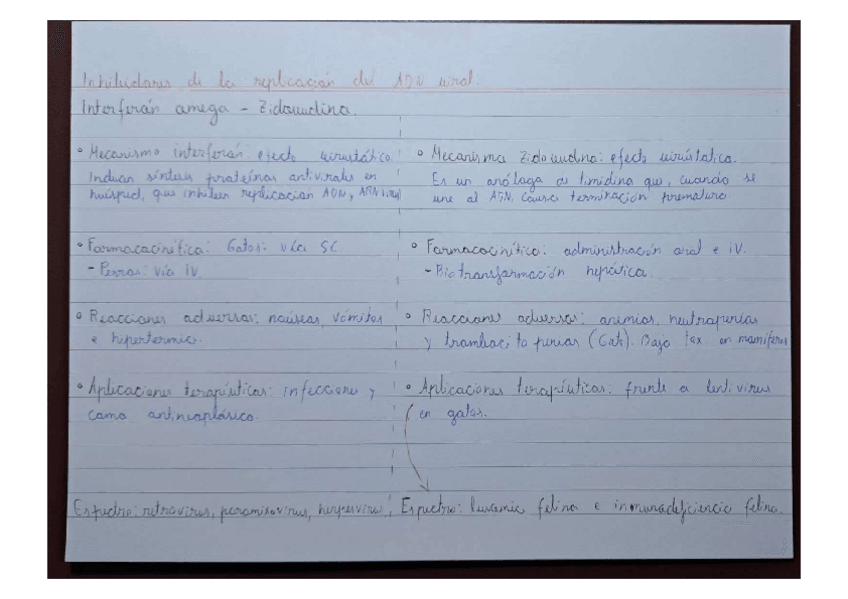 Inhibidores de la replicación del ADN viral.
Interferón omega - Zidovudina.
° Mecanismo interferón: efecto virustático.
Inducen síntesis proteínas antivirales en
huésped, que inhiben replicación ADN, ARN viral
° Farmacocinética: Gatos: vía SC
- Perros: vía IV
° Reacciones adversas: naúseas, vómitos
e hipertermia.
° Aplicaciones terapéuticas: infecciones y
como antineoplásico.
Espectro: retrovirus, paramixovirus, herpesvirus
° Mecanismo Zidovudina: efecto virustático.
Es un análogo de timidina que, cuando se
une al ADN, causa terminación prematura
° Farmacocinética: administración oral e IV.
- Biotransformación hepática.
° Reacciones adversas: anemias, neutropenias
y trombocitopenias (Gat). Baja tox. en mamíferos
° Aplicaciones terapéuticas: frente a lentivirus
en gatos.
Espectro: leucemia felina e inmunodeficiencia felina.